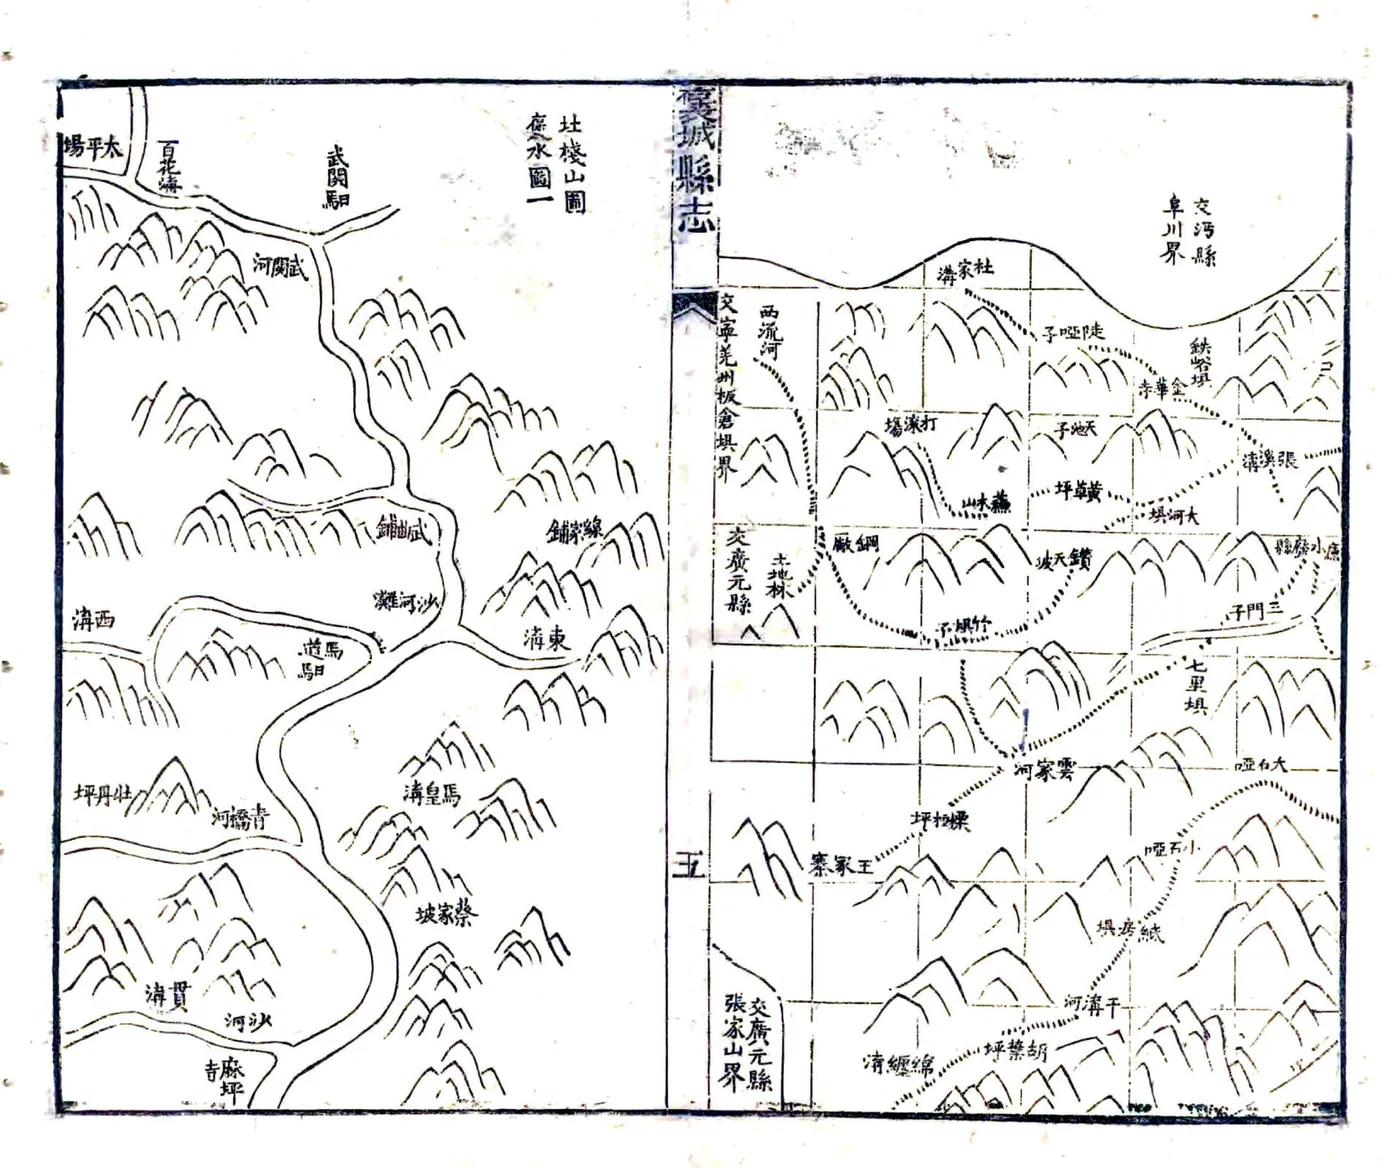 襃城縣志
五
交沔縣
阜川界
杜家溝
陡啞子
鉄峪垻
金華寺
西流河
交寧羌州板倉垻界
打滾塲
天池子
張溪溝
黃草坪
大河垻
蘸水山
鋼廠
鑽天坡
小廢縣
交廣元縣
土地林
竹垻子
三門子
七里垻
雲家河
大石啞
小石啞
王家寨
紙房垻
干溝河
胡葉坪
綿纏溝
交廣元縣
張家山界
北棧山圖
襃水圖一
武関馹
百花溝
太平塲
武関河
武曲鋪
線家鋪
沙河灘
東溝
西溝
馬道馹
馬皇溝
青橋河
牡丹坪
蔡家坡
貫溝
沙河
麻坪寺